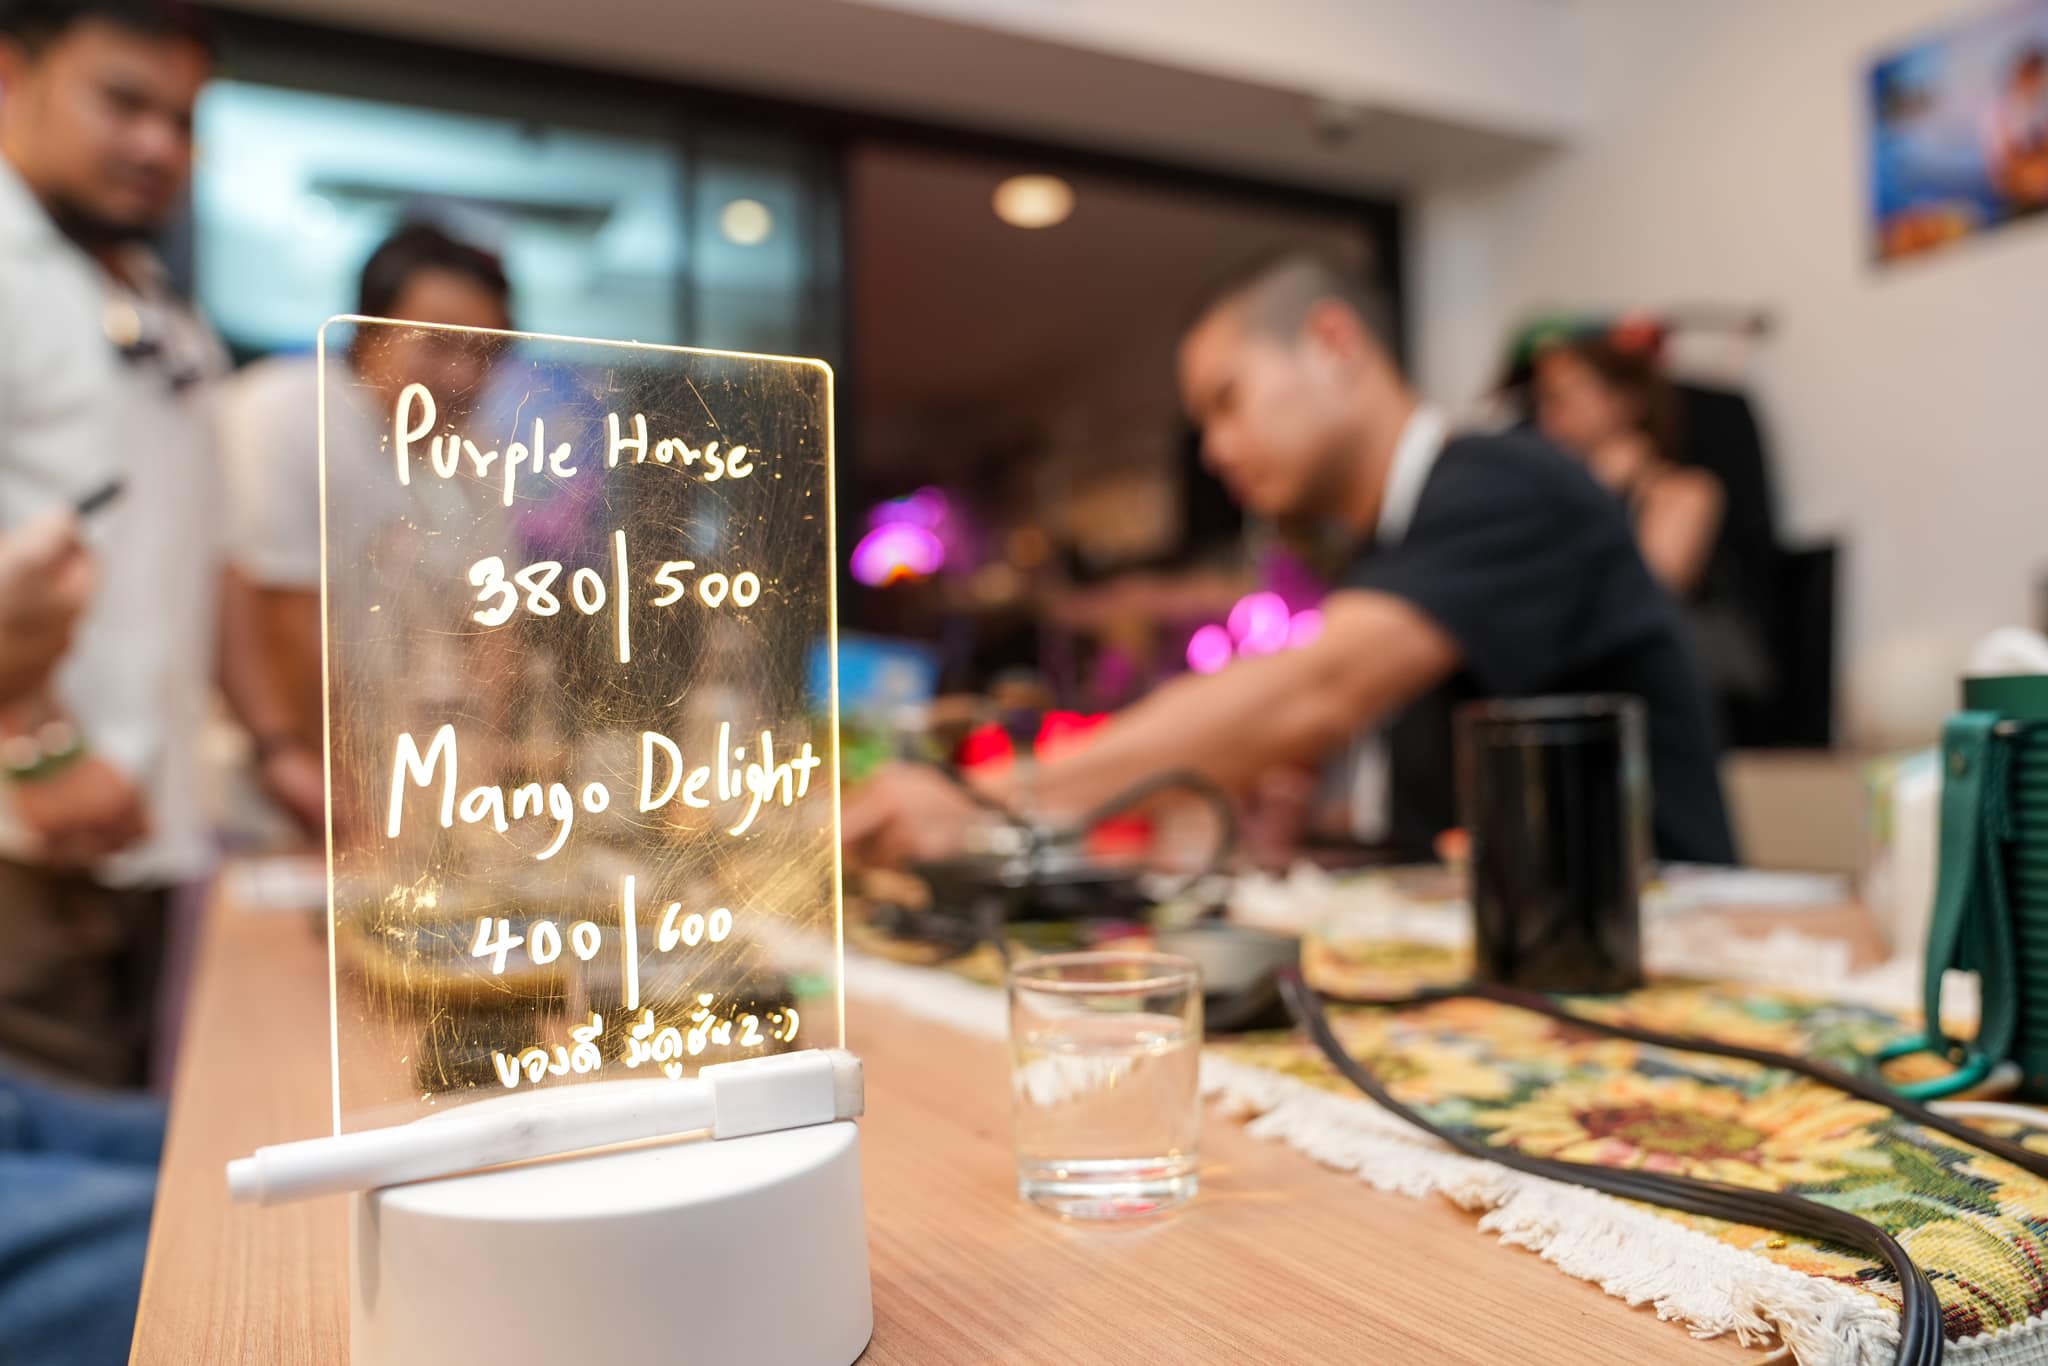 Purple Horse
380 | 500
Mango Delight
400 | 600
ของดี มีดูชั้น 2 :)